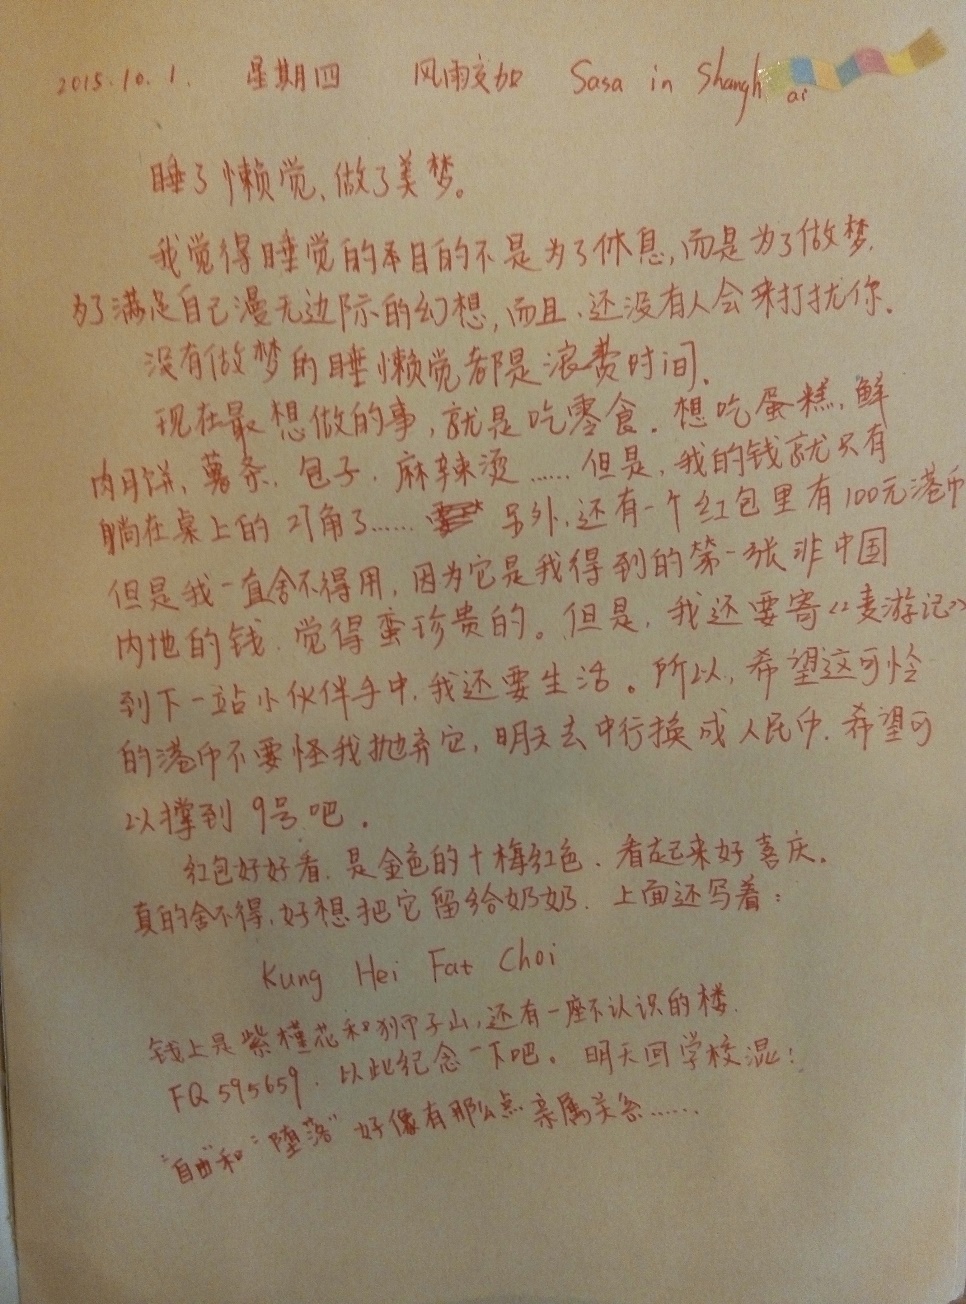 2015.10.1. 星期四 风雨交加 Sasa in Shanghai
睡了懒觉、做了美梦。
我觉得睡觉的本目的不是为了休息,而是为了做梦.
为了满足自己漫无边际的幻想,而且.还没有人会来打扰你.
没有做梦的睡懒觉都是浪费时间.
现在最想做的事,就是吃零食.想吃蛋糕,鲜
肉月饼,薯条.包子.麻辣烫……但是,我的钱就只有
躺在桌上的2角了…… 另外,还有一个红包里有100元港币
但是我一直舍不得用,因为它是我得到的第一张非中国
内地的钱.觉得蛮珍贵的。但是,我还要寄《麦游记》
到下一站小伙伴手中,我还要生活。所以,希望这可怜
的港币不要怪我抛弃它,明天去中行换成人民币.希望可
以撑到9号吧.
红包好好看.是金色的十梅红色.看起来好喜庆.
真的舍不得,好想把它留给奶奶.上面还写着:
Kung Hei Fat Choi
钱上是紫槿花和狮子山,还有一座不认识的楼.
FQ595659.以此纪念一下吧。明天回学校混!
"自由"和"堕落"好像有那么点亲属关系……